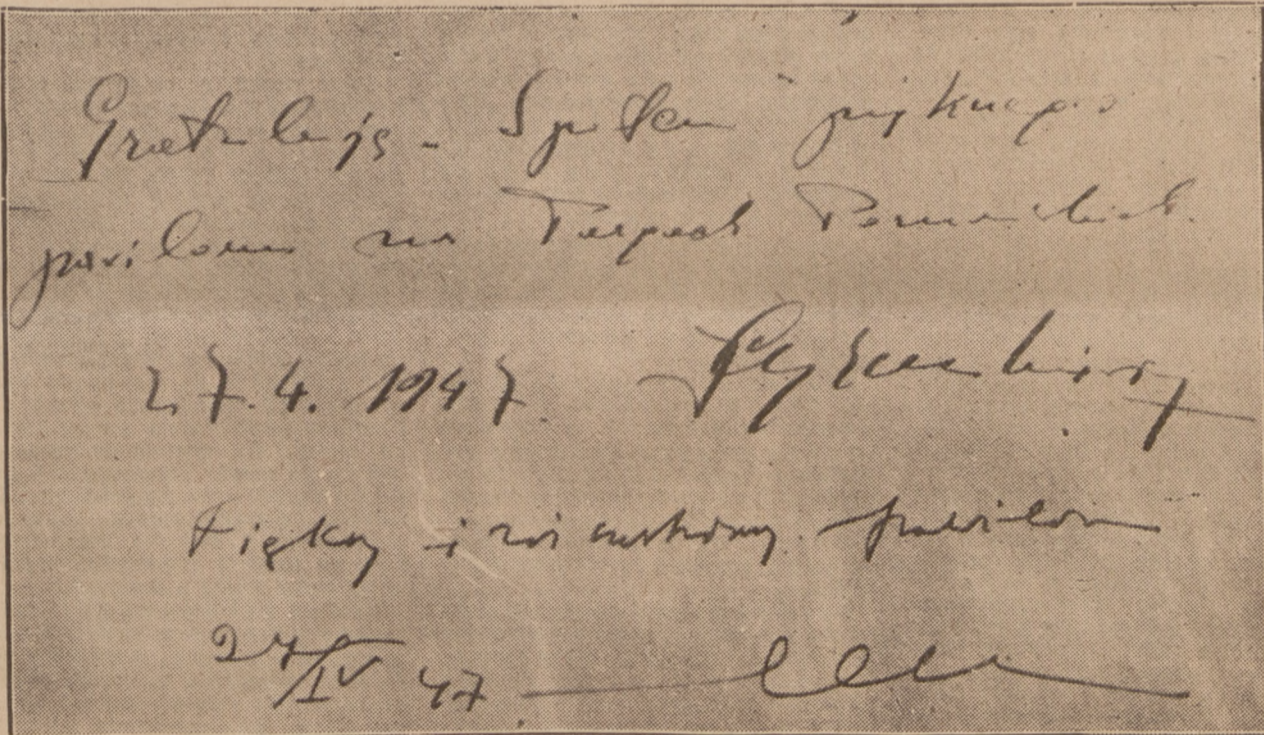 Gratuluję Społem pięknego
pawilonu na Targach Poznańskich.
27.4.1947.
Piękny i pawilon
27/IV 47